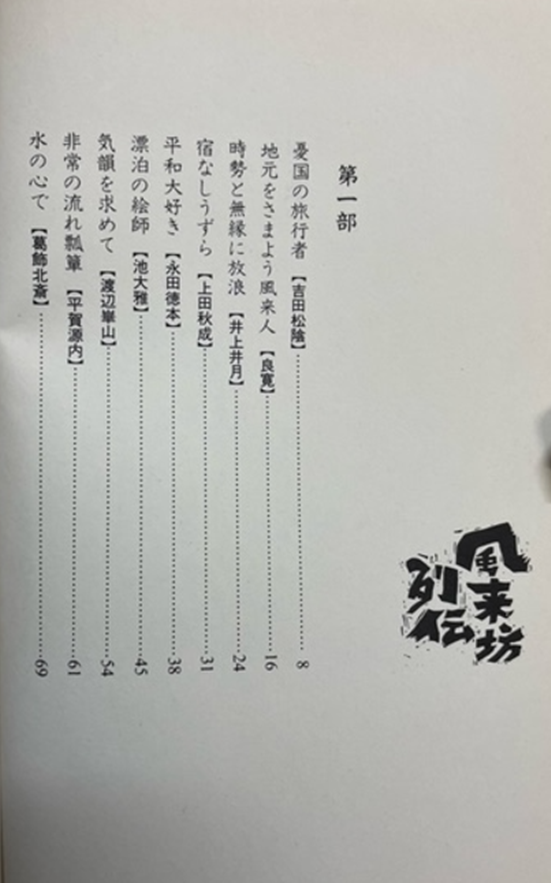 風来坊
列伝
第一部
憂国の旅行者【吉田松陰】8
地元をさまよう風来人【良寛】16
時勢と無縁に放浪【井上井月】24
宿なしうずら【上田秋成】31
平和大好き【永田徳本】38
漂泊の絵師【池大雅】45
気韻を求めて【渡辺崋山】54
非常の流れ瓢箪【平賀源内】61
水の心で【葛飾北斎】69